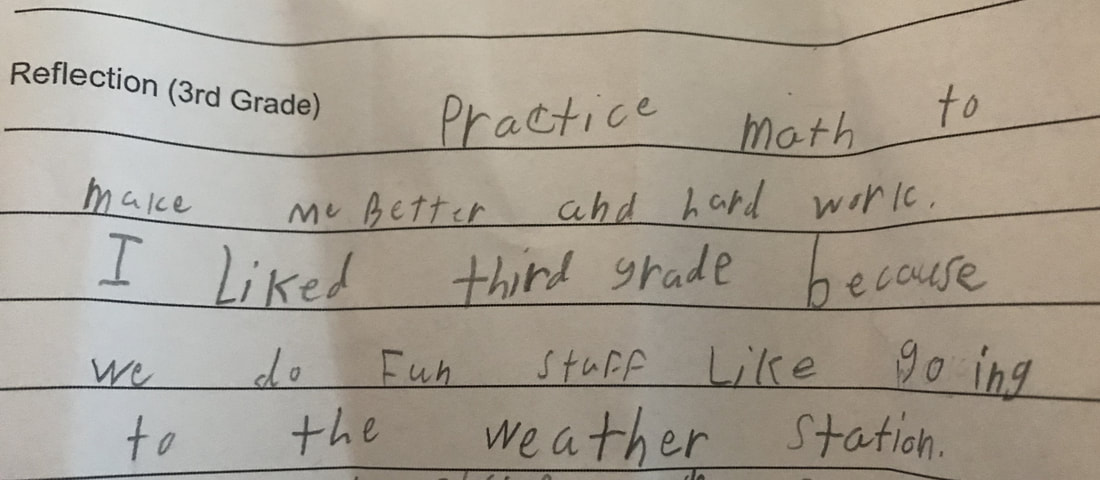 Reflection (3rd Grade) Practice math to
make me Better and hard work.
I Liked third grade because
we do Fun stuFF Like going
to the weather station.